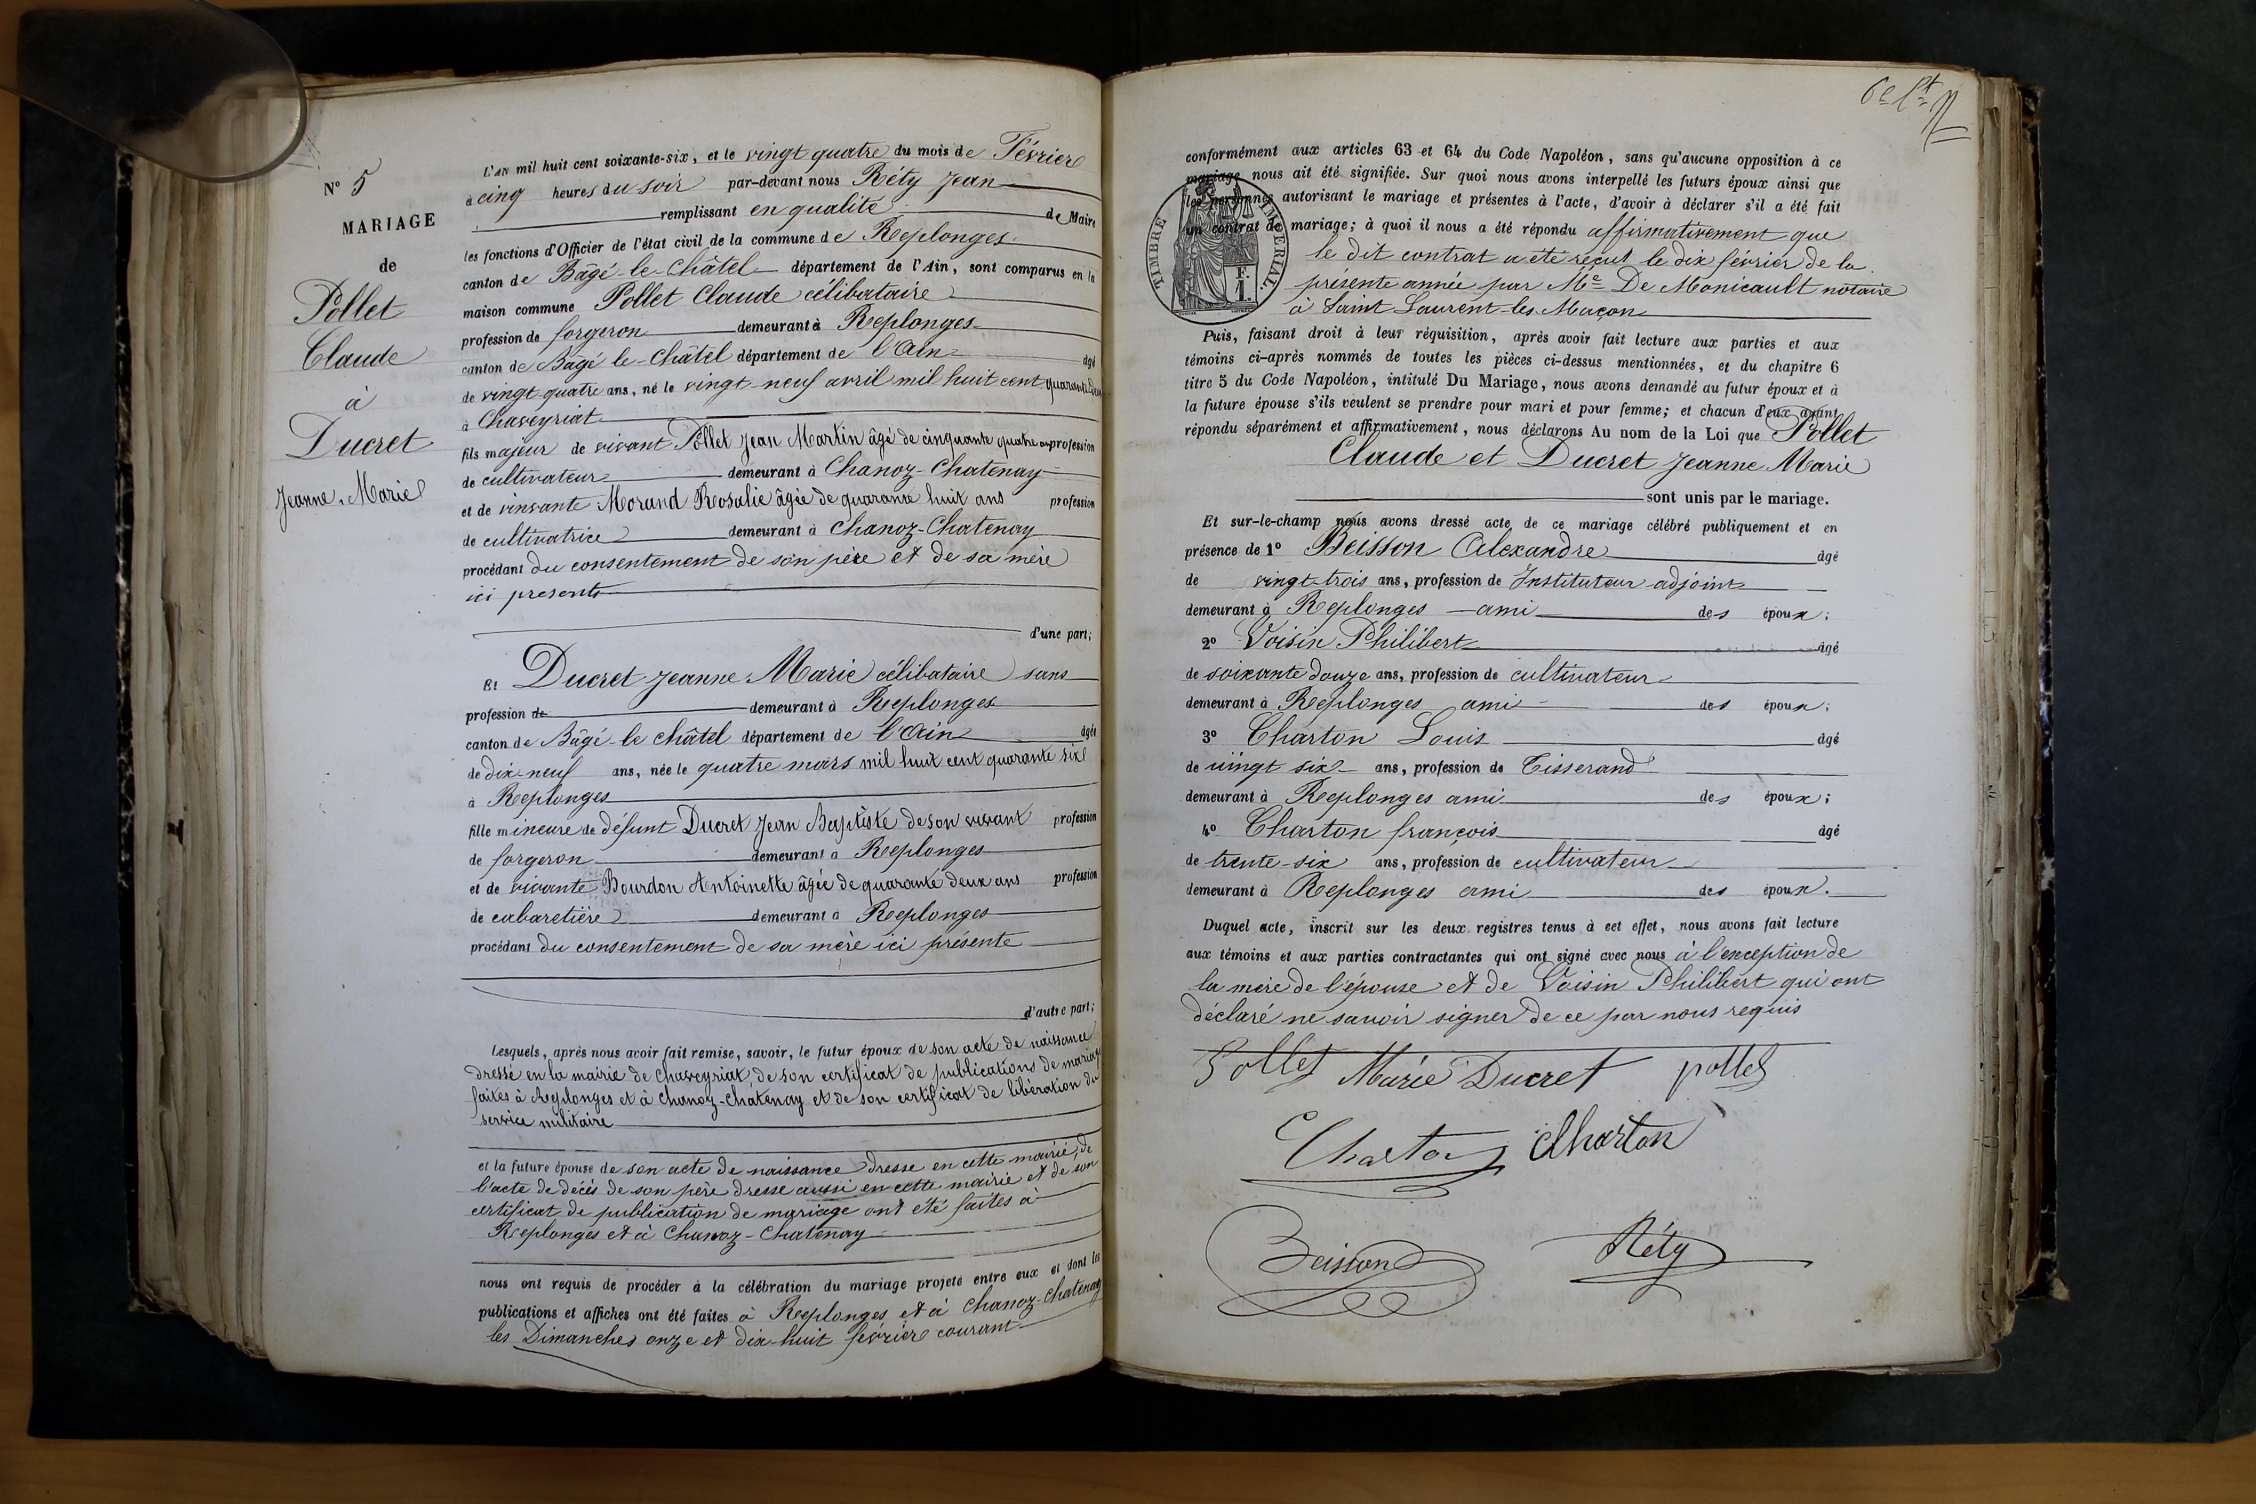 N° 5
MARIAGE
de
Pollet
Claude
à
Ducret
Jeanne Marie
L'AN mil huit cent soixante-six, et le vingt quatre du mois de Février
à cinq heures du soir par-devant nous Réty Jean
remplissant en qualité de Maire
les fonctions d'Officier de l'état civil de la commune de Replonges
canton de Bâgé-le-Châtel département de l'Ain, sont comparus en la
maison commune Pollet Claude célibataire
profession de forgeron demeurant à Replonges
canton de Bâgé le-Châtel département de l'Ain âgé
de vingt quatre ans, né le vingt-neuf avril mil huit cent quarante
à Chaveyriat
fils majeur de vivant Pollet Jean Martin âgé de cinquante quatre ans profession
de cultivateur demeurant à Chanoz-Chatenay
et de vivante Morand Rosalie âgée de quarante huit ans profession
de cultivatrice demeurant à Chanoz-Chatenay
procédant du consentement de son père et de sa mère
ici présents
d'une part;
Et Ducret Jeanne Marie célibataire sans
profession de demeurant à Replonges
canton de Bâgé-le Châtel département de l'Ain âgée
de dix-neuf ans, née le quatre mars mil huit cent quarante six
à Replonges
fille mineure de défunt Ducret Jean Baptiste de son vivant profession
de forgeron demeurant à Replonges
et de vivante Bourdon Antoinette âgée de quarante deux ans profession
de cabaretière demeurant à Replonges
procédant du consentement de sa mère ici présente
d'autre part;
Lesquels, après nous avoir fait remise, savoir, le futur époux de son acte de naissance
dressé en la mairie de Chaveyriat, de son certificat de publications de mariage
faites à Replonges et à Chanoz-Chatenay et de son certificat de libération du
service militaire
et la future épouse de son acte de naissance dresse en cette mairie, de
l'acte de décès de son père dresse aussi en cette mairie et de son
certificat de publication de mariage ont été faites à
Replonges et à Chanoz-Chatenay
nous ont requis de procéder à la célébration du mariage projeté entre eux et dont les
publications et affiches ont été faites à Replonges et à Chanoz-Chatenay
les Dimanches onze et dix-huit février courant
conformément aux articles 63 et 64 du Code Napoléon, sans qu'aucune opposition à ce
mariage nous ait été signifiée. Sur quoi nous avons interpellé les futurs époux ainsi que
les personnes autorisant le mariage et présentes à l'acte, d'avoir à déclarer s'il a été fait
un contrat de mariage; à quoi il nous a été répondu affirmativement que
le dit contrat a été reçut le dix février de la
présente année par Me De Monicault notaire
à Saint Laurent-les-Macon
TIMBRE IMPÉRIAL.
F.
1.
Puis, faisant droit à leur réquisition, après avoir fait lecture aux parties et aux
témoins ci-après nommés de toutes les pièces ci-dessus mentionnées, et du chapitre 6
titre 5 du Code Napoléon, intitulé Du Mariage, nous avons demandé au futur époux et à
la future épouse s'ils veulent se prendre pour mari et pour femme; et chacun d'eux ayant
répondu séparément et affirmativement, nous déclarons Au nom de la Loi que Pollet
Claude et Ducret Jeanne Marie
sont unis par le mariage.
Et sur-le-champ nous avons dressé acte de ce mariage célébré publiquement et en
présence de 1° Beisson Alexandre âgé
de vingt-trois ans, profession de Instituteur adjoint
demeurant à Replonges ami des époux;
2° Voisin Philibert âgé
de soixante douze ans, profession de cultivateur
demeurant à Replonges ami des époux;
3° Charton Louis âgé
de vingt six ans, profession de Tisserand
demeurant à Replonges ami des époux;
4° Charton françois âgé
de trente-six ans, profession de cultivateur
demeurant à Replonges ami des époux.
Duquel acte, inscrit sur les deux registres tenus à cet effet, nous avons fait lecture
aux témoins et aux parties contractantes qui ont signé avec nous à l'exception de
la mère de l'épouse et de Voisin Philibert qui ont
déclaré ne savoir signer de ce par nous requis
Pollet Marie Ducret pollet
Charton Charton
Beisson Réty